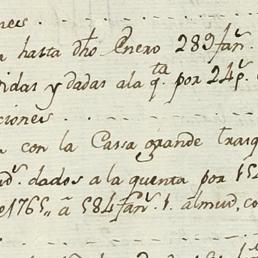 nes
hasta dho Enero 289 fan.s
idas y dadas ala q.ta por 24 p.
ciones
con la Cassa grande tras
d.s dados a la quenta por 15
e 1765, â 584 fan.s 1. almud, co